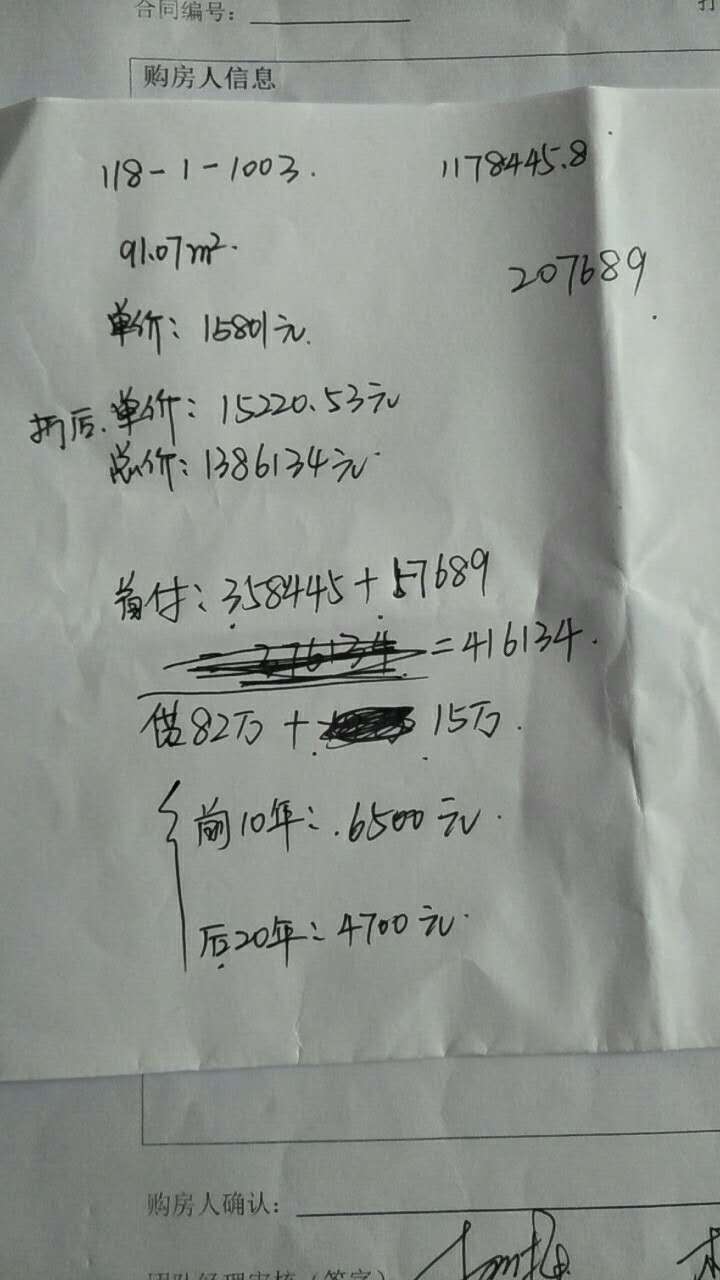 合同编号：
打
购房人信息
118-1-1003.
1178445.8
91.07m².
207689
单价：15801元.
折后.单价：15220.53元
总价：1386134元
首付：358445+57689
=416134.
贷82万+ 15万.
前10年：.6500元.
后20年：4700元.
购房人确认：
团队经理审核（签字）